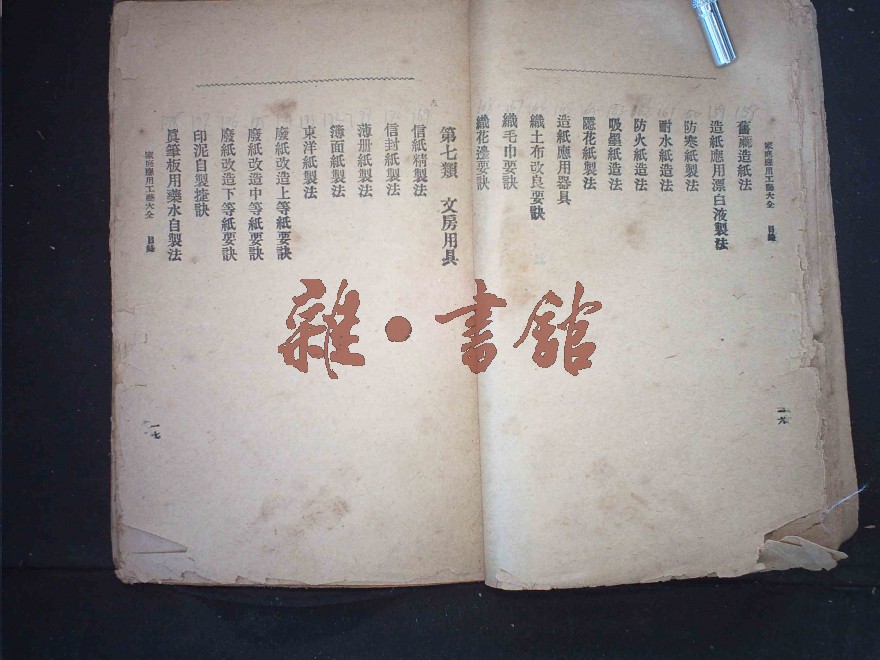 家庭應用工藝大全 目錄
舊蔴造紙法
造紙應用漂白液製法
防寒紙製法
耐水紙造法
防火紙造法
吸墨紙造法
隱花紙製法
造紙應用器具
織土布改良要訣
織毛巾要訣
織花邊要訣
一六
第七類 文房用具
信紙精製法
信封紙製法
薄册紙製法
簿面紙製法
東洋紙製法
廢紙改造上等紙要訣
廢紙改造中等紙要訣
廢紙改造下等紙要訣
印泥自製捷訣
眞筆板用藥水自製法
家庭應用工藝大全 目錄
一七
雜·書館